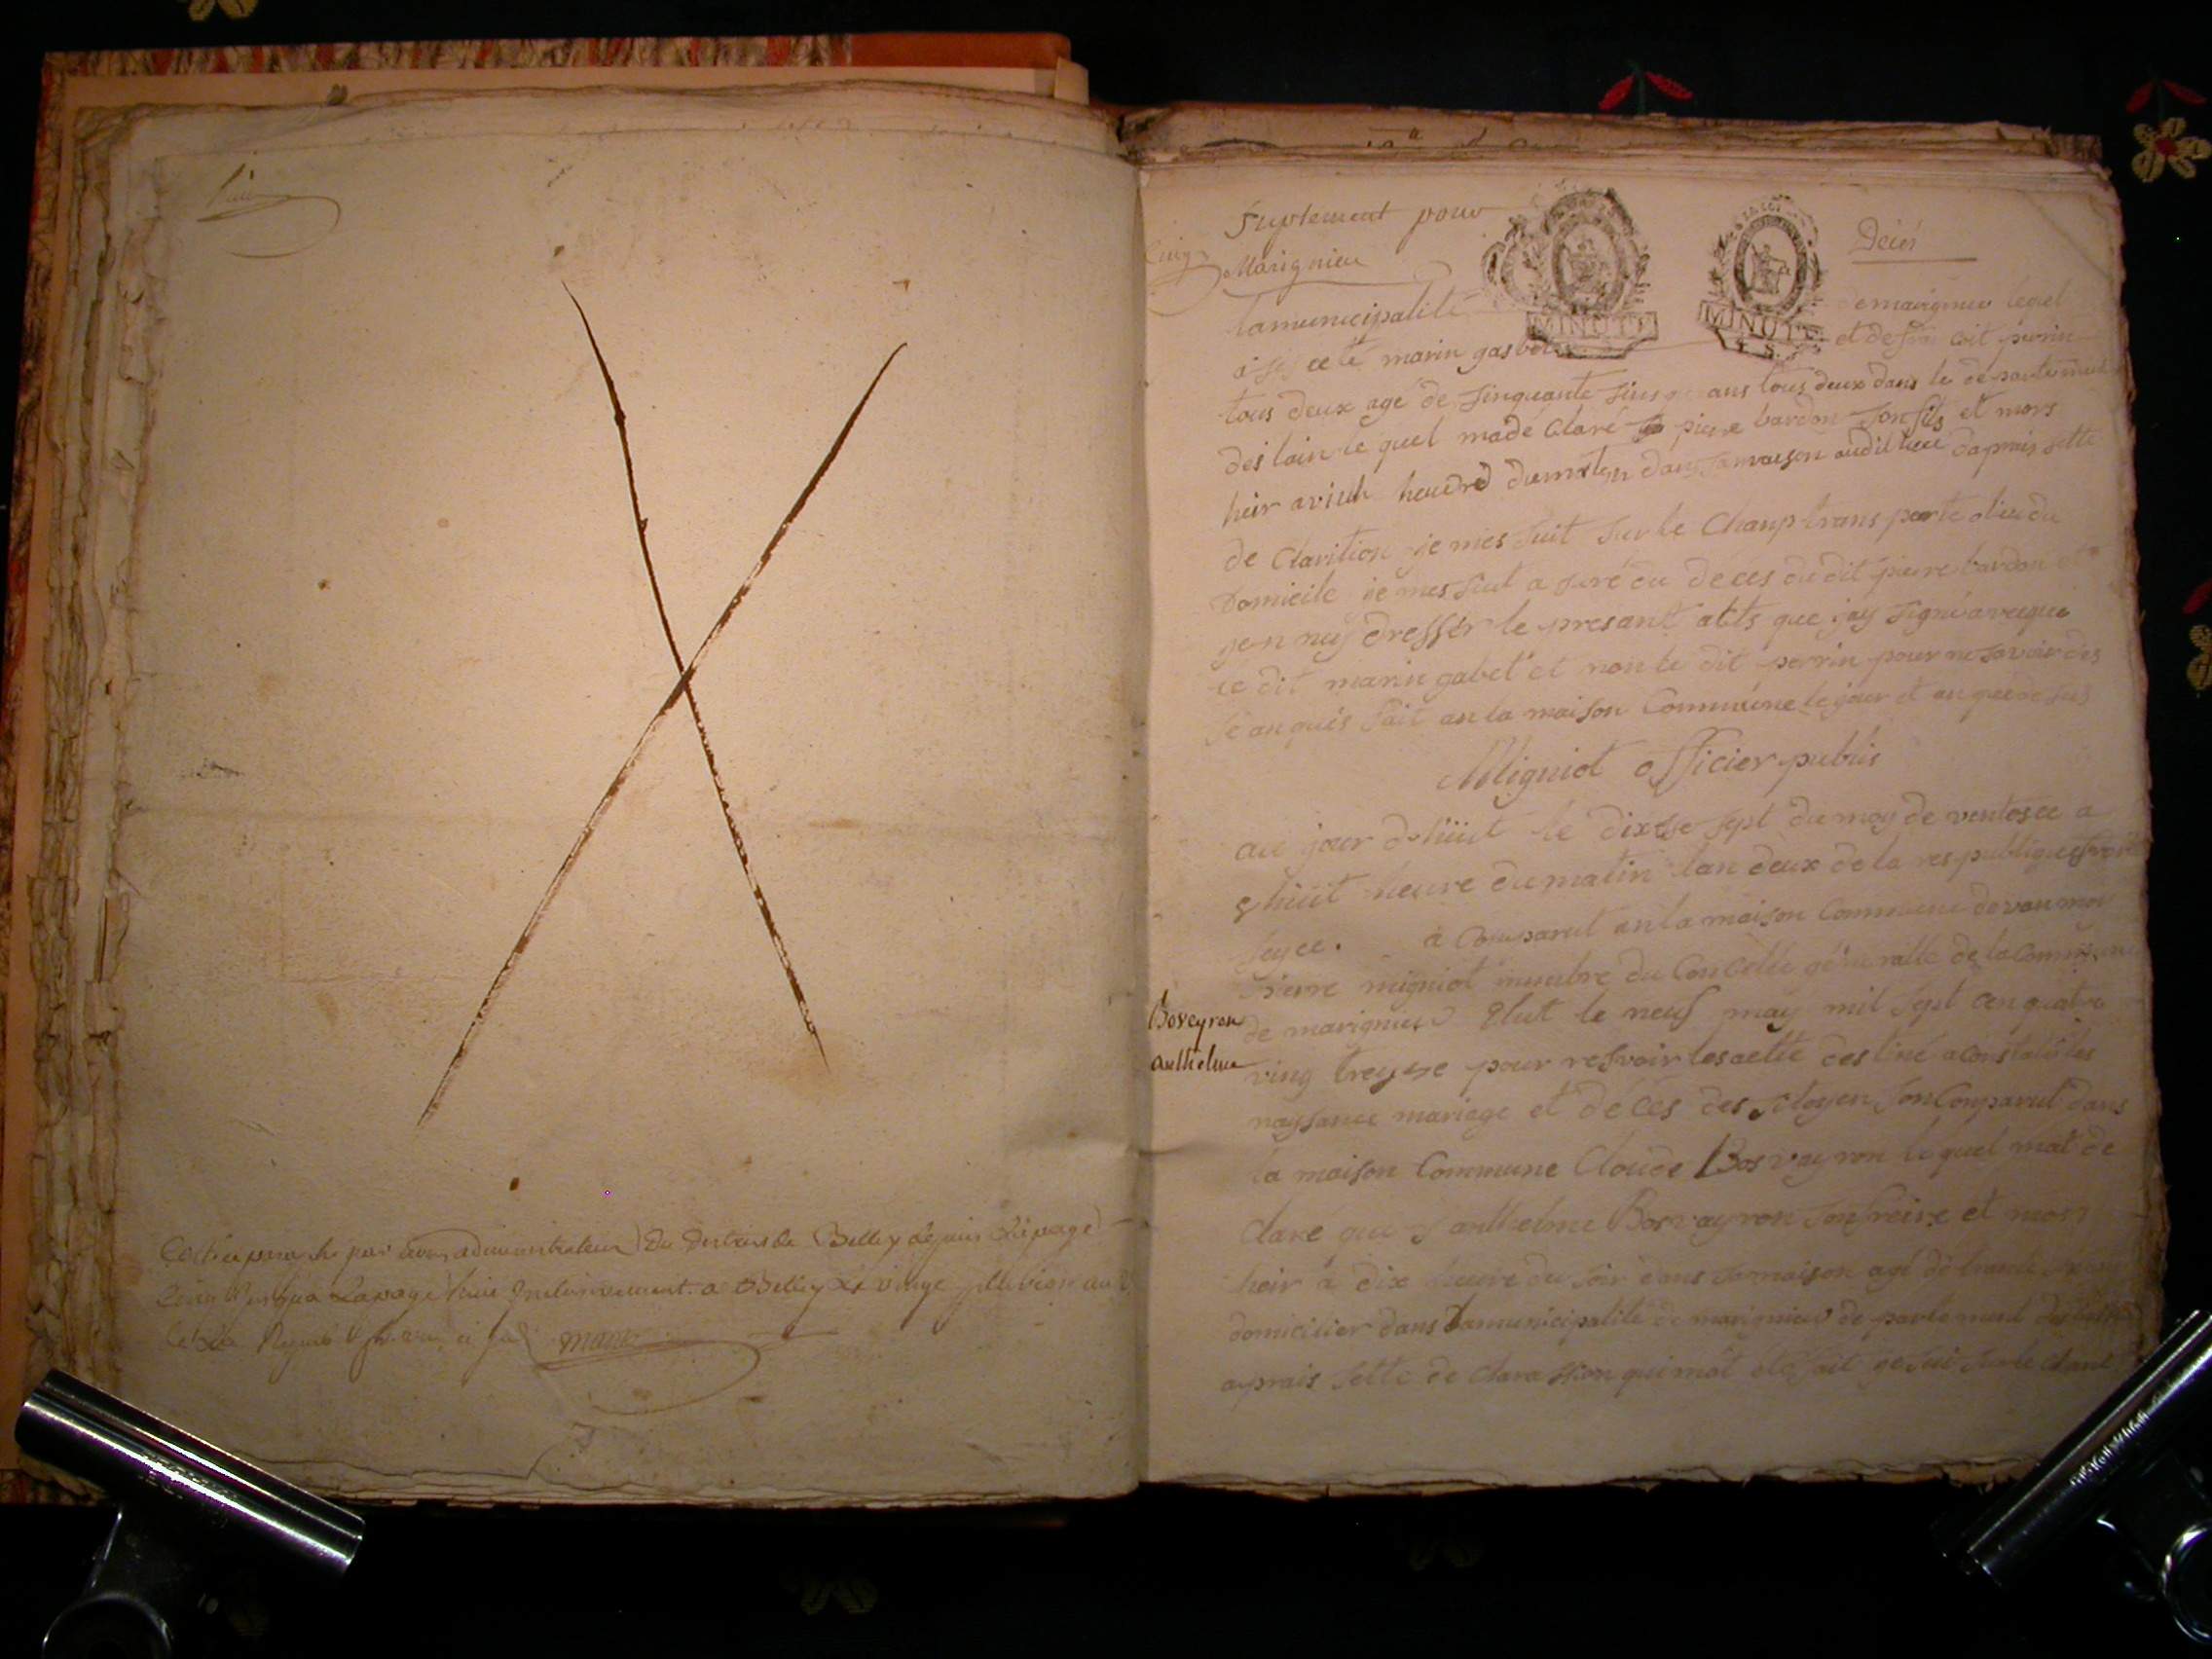 huit
Certiffié par
administrateur Du District de Belley Depuis La page
Cinq Jusqua La page huit Inclusivement a Belley Le vingt pluviose an 2
mann
Suplement pour
Cinq
Marignieu
Deces
MINUTE
MINUTE
4. S.
lamunicipalité demarignieu lequel
marin gasbet et
tous deux agé de sinquante sinq ans tous deux dans le departement
des lain le quel madé claré pierre bardon son fils et mors
heir a heure dumaten dans samaison audit lieu daprais sette
de claration je mes suit sur le champ transporté o lieu du
Domicile je mes suit a suré du deces du dit pierre bardon
jen nay dresser le presant atts que jay signé avecque
le dit marin gabet et non le dit perrin pour ne savoir des
se anquis fait an la maison Commune le jour et an que de sus
Migniot officier publis
au jour dhuit le dixse sept du moy de ventosee a
8 huit heure du matin lan deux de la respublique
a comparut an la maison Commune devan moy
Pierre migniot manbre du Concelle géneralle de la Commune
Boveyron
de marignieu Elut le neuf may mil sept cen quatre
Anthelme
ving treyze pour resvoir les aette destiné a constater les
naysance mariage et déces des sitoyen son Comparut dans
la maison Commune Cloude Bosvayron lequel mat de
claré que anthelme Bosvayron son freire et mors
heir a dix heure du soir dans samaison agé de trante
domicilier dans lamunicipalité de marignieu de partement
aprais sette de claration qui mat été fait je suit sur le chant